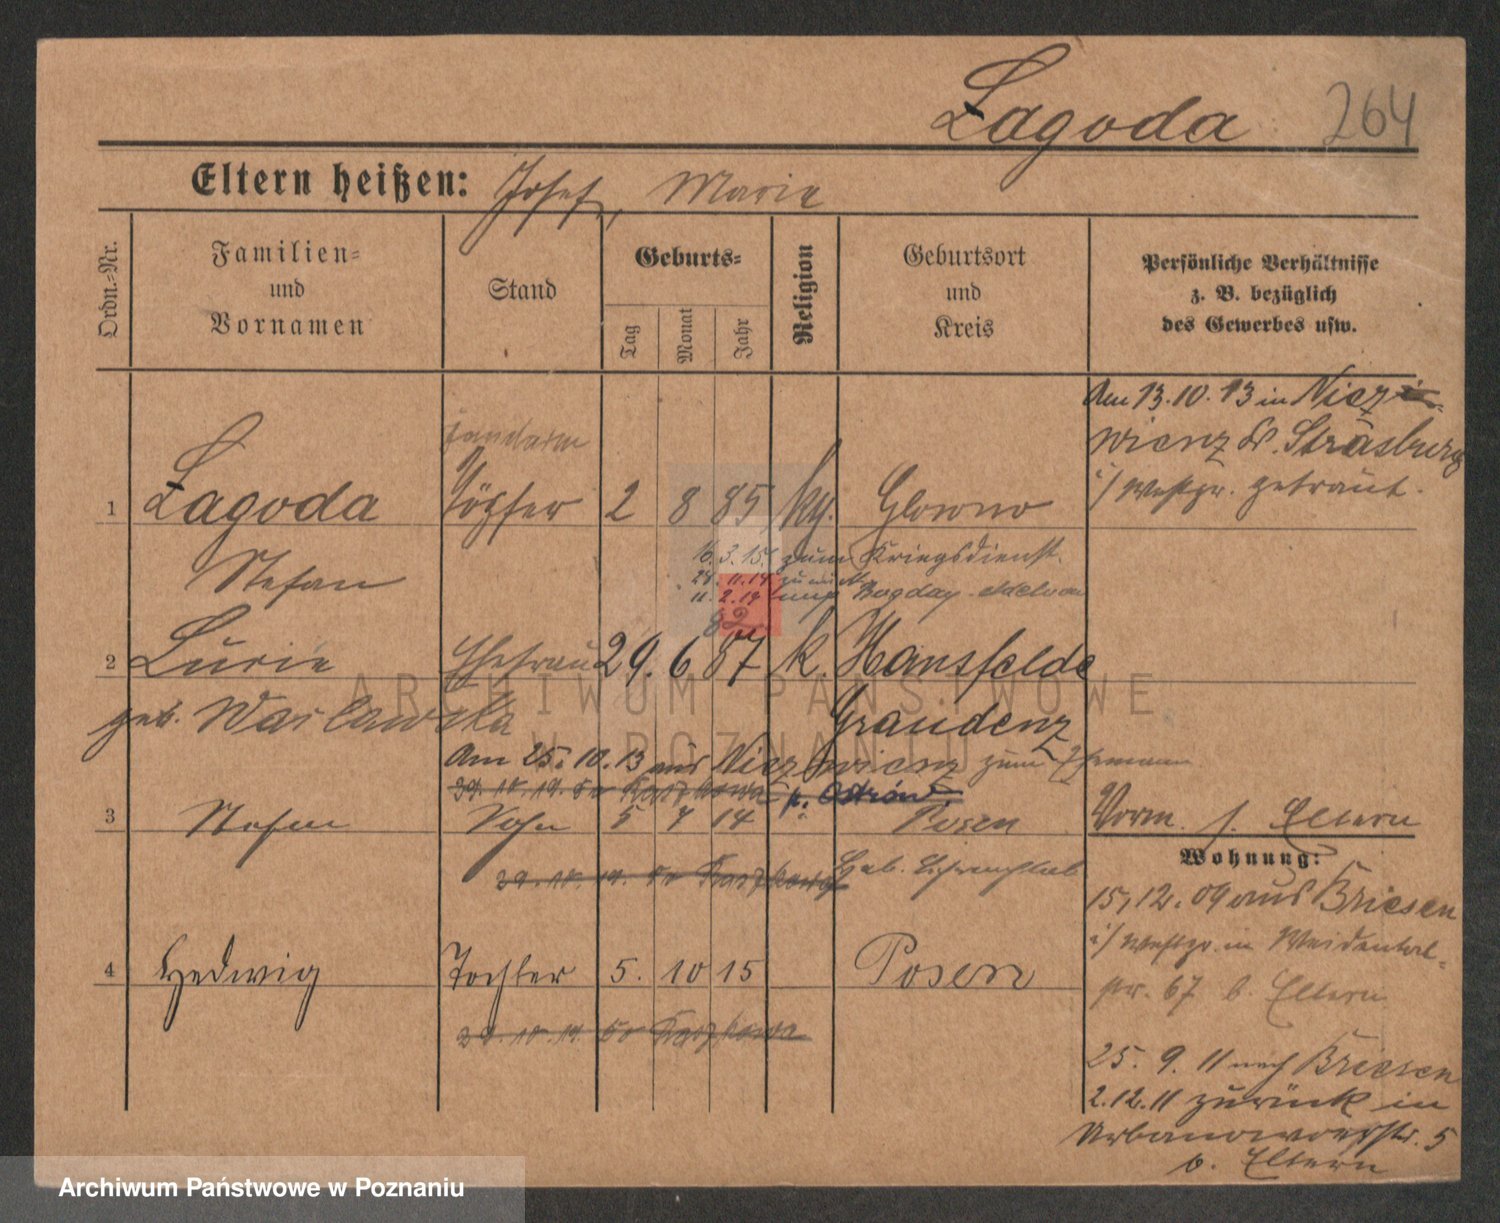 Lagoda 264
Eltern heißen: Josef, Maria
Ordn.-Nr.
Familien-
und
Vornamen
Stand
Geburts-
Tag
Monat
Jahr
Religion
Geburtsort
und
Kreis
Persönliche Verhältnisse
z. B. bezüglich
des Gewerbes usw.
Am 13.10.13 in
wienz Kr. Strasburg
i/ Westpr. getraut.
1 Lagoda Töpfer 2 8 85 kg. Glowno
Stefan
16.3.15. zum Kriegsdienst.
28.11.18
11.2.19
2 Lucie Ehefrau 29. 6 87 k. Hansfelde
geb. Waclawska Graudenz
Am 25.10.13 aus zum Ehemann
29.10.19. p. Ostrów
3 Stefan Sohn 5 7 14 Posen
Vorm. s. Eltern
29.10.19.
Wohnung:
15.12.09 aus Briesen
i/ Westpr. in Weidental-
str. 67 b. Eltern
4 Hedwig Tochter 5. 10 15 Posen
29.10.19.
25.9.11 nach Briesen
2.12.11 zurück in
5
b. Eltern
ARCHIWUM PAŃSTWOWE
W POZNANIU
Archiwum Państwowe w Poznaniu